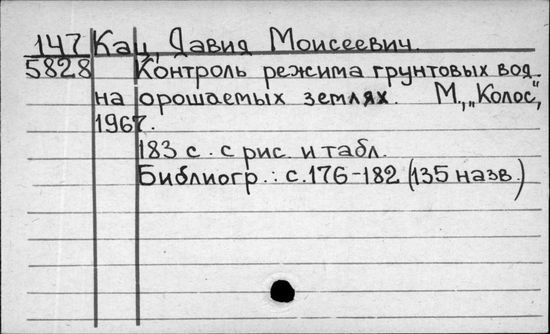 147 Кац, Давид Моисеевич.
5828 Контроль режима грунтовых вод
на орошаемых землях. М., „Колос“,
1967.
183 с. с рис. и табл.
Библиогр.: с. 176-182 (135 назв.)